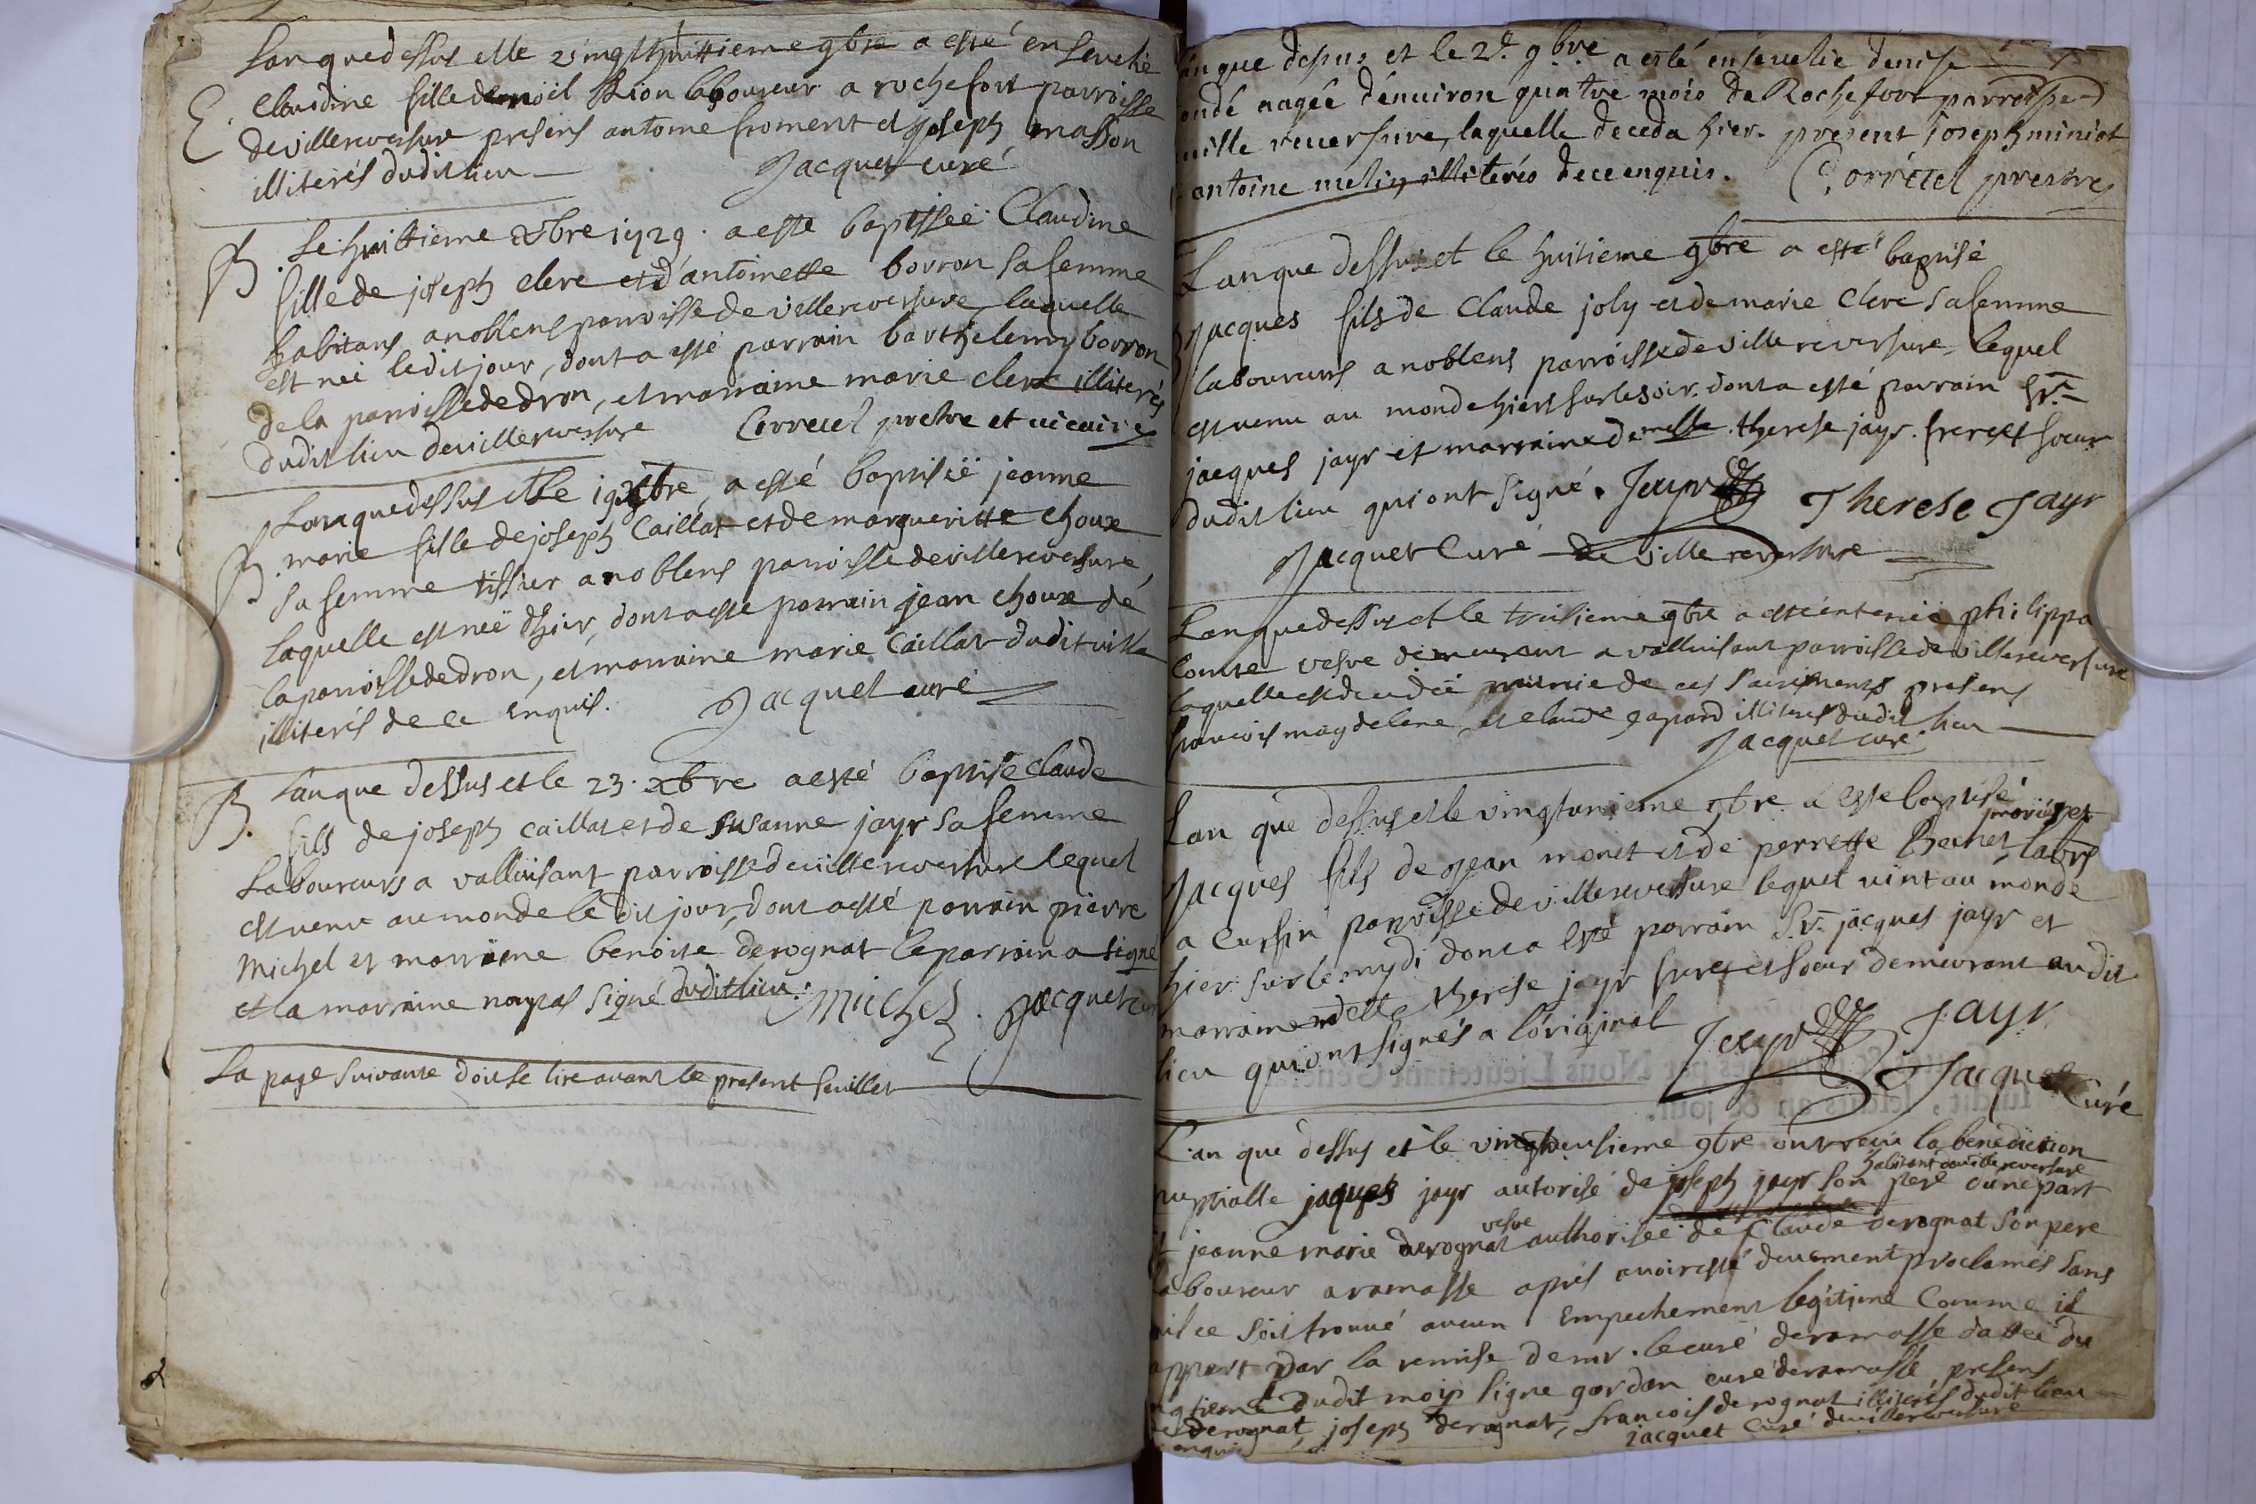 Lan que dessus et le vingthuittieme 9bre a esté ensevelie
E. Claudine fille de noël laboureur a rochefort parroisse
de villereversure presens antoine froment et joseph masson
illiterés dudit lieu Jacquet curé
B. Le huittieme xbre 1729. a esté baptisseé Claudine
fille de joseph clere et d'antoinette borron sa femme
habitans a noblens parroisse de villereversure laquelle
est neé ledit jour, dont a esté parrain barthelemy borron
de la parroisse de dron, et marraine marie clere illiterés
dudit lieu de villereversure Corretel prestre et vicaire
B. Lan que dessus et le 19 xbre, a esté baptiseë jeanne
marie fille de joseph Caillat et de margueritte choux
sa femme tissier a noblens parroisse de villereversure,
laquelle est neë d'hier, dont a esté parrain jean choux de
la parroisse de dron, et marraine marie Caillat dudit ville
illiterés de ce enquis. Jacquet curé
B. L'an que dessus et le 23. xbre a esté baptisé Claude
fils de joseph caillat et de susanne jayr sa femme
Laboureurs a valluisant parroisse de villereversure lequel
est venu au monde le dit jour, dont a esté parrain pierre
Michel et marraine benoite derognat le parrain a signé
et la marraine non pas signé dudit lieu. Michel. Jacquet cur
La page suivante doit se lire avant le present feuillet
an que desus et le 2e. 9bre a esté ensevelie denise
ondé aageé d'environ quatre mois de Rochefort parroisse d
ville reversure, laquelle deceda hier. present joseph miniat
antoine melin illiterés de ce enquis. Corretel prestre
L'an que dessus et le huitieme 9bre a esté baptisé
Jacques fils de Claude joly et de marie Clere sa femme
laboureurs a noblens parroisse de villereversure, lequel
est venu au monde hiers sur le soir. dont a esté parrain Sr.
jacques jayr et marraine demelle. therese jayr. frere et soeur
dudit lieu qui ont signé. Jayr Therese Jayr
Jacquet Curé de villereversure
Lan que dessus et le 9bre a esté enterreé philippa
Comte vefve demeurant a valluisant parroisse de villereversure
laquelle est decedeé munie de ces sacrements presens
francois magdelene, et claude gapard illiterés dudit lieu
Jacquet curé.
Lan que dessus et le vingtunieme 9bre a esté baptisé
mariés et
Jacques fils de jean monet et de perrette Bechet labrs
a Cursin parroisse de villereversure lequel vint au monde
hier sur le mydi dont a esté parrain Sr. jacques jayr et
marraine delle therese jayr frere et soeur demeurant audit
lieu qui ont signés a l'original Jayr T. Jayr
Jacquet Curé
L'an que dessus et le vingtdeusieme 9bre ont receu la benediction
habitant a villereversure
nuptialle jaques jayr autorisé de joseph jayr son pere d'une part
vefve
jeanne marie derognat authoriseé de Claude derognat son pere
laboureur a ramasse aprés avoir esté deuement proclamés sans
qu'il ce soit trouvé aucun empechement legitime Comme il
appert par la remise de mr. le curé de ramasse datteé du
dudit mois signe gardon curé de ramasse, presens
derognat, joseph derognat, francois derognat illiterés dudit lieu
enquis jacquet Curé de villereversure